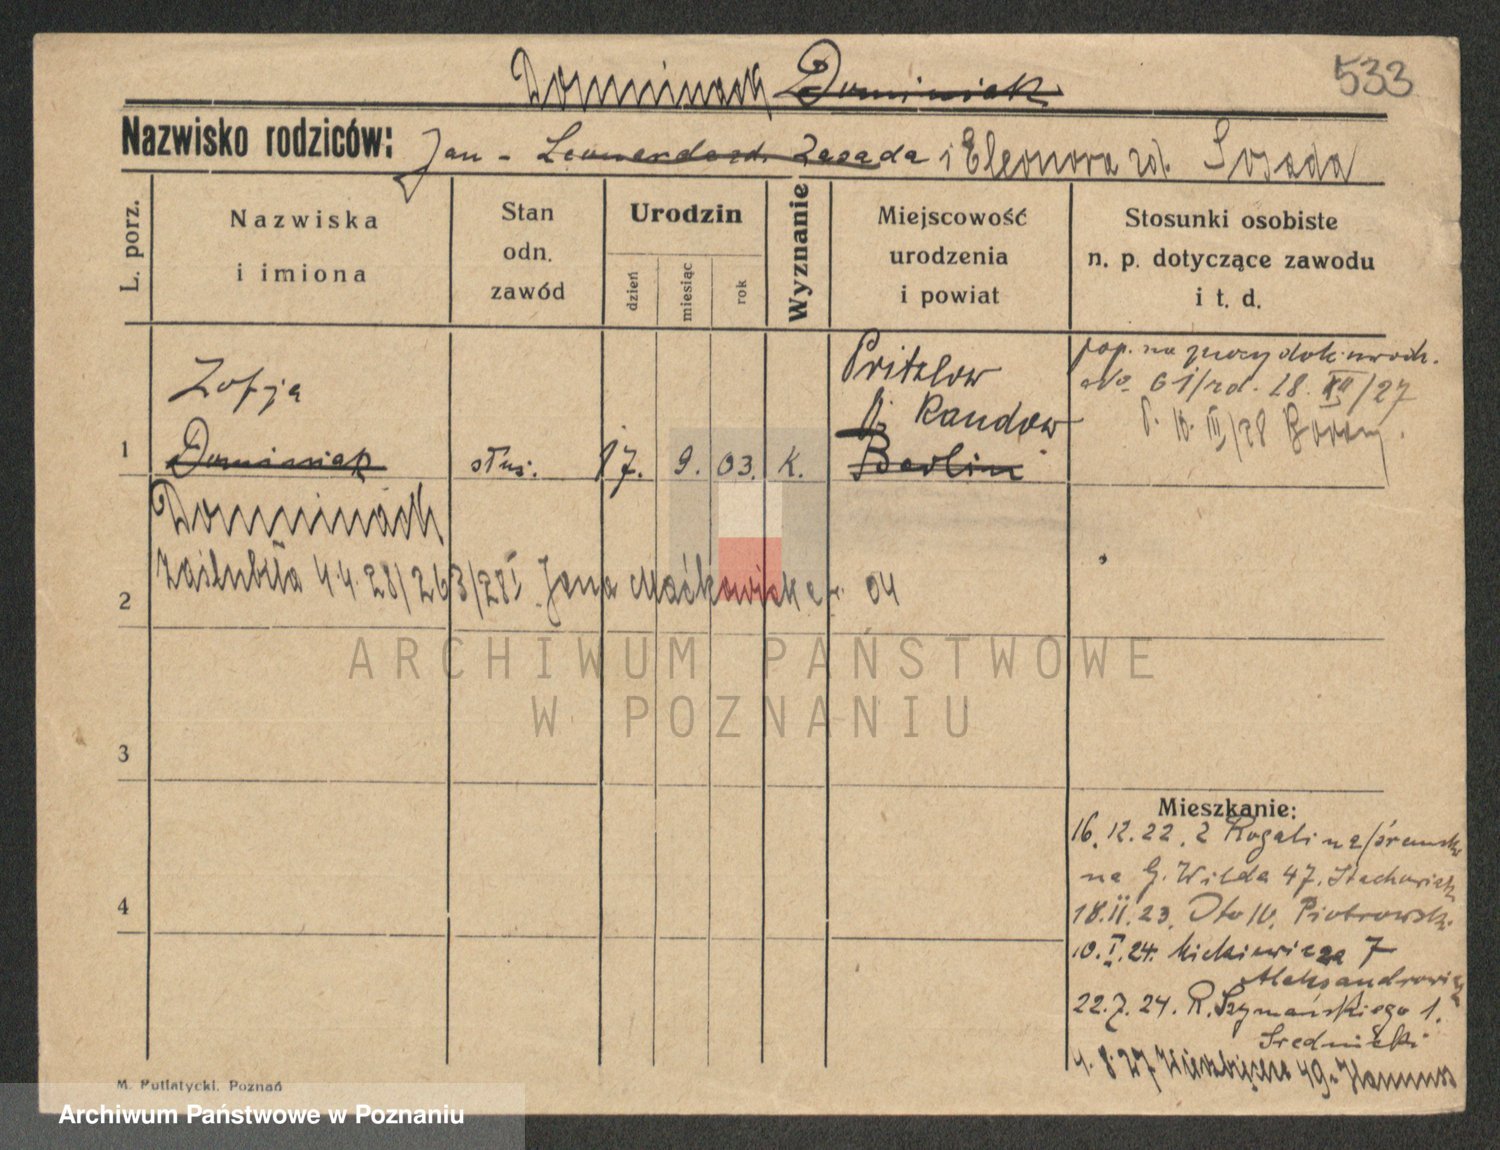 533
Dominiack Dominiak
Nazwisko rodziców: Jan - Zasada i Eleonora zd. Sosada
L. porz.
Nazwiska i imiona
Stan odn. zawód
Urodzin
dzień
miesiąc
rok
Wyznanie
Miejscowość urodzenia i powiat
Stosunki osobiste n. p. dotyczące zawodu i t. d.
1
Zofja
Dominiak
służ.
17. 9. 03. K.
Pritzlow
p. Randow
Berlin
pop. na mocy dok. urodz.
No 61/rd. 28. XII/27
P. 10. III/28
Dominiack
2
zaślubiła 4.4.28/263/28I Jana Maćkowiaka 04
3
4
Mieszkanie:
16. 12. 22. z Rogalina/śremsk
na G. Wilda 47. Stachowiak
18. II. 23. Piotrowsk.
10. I. 24. Mickiewicza 7
Aleksandrowicz
22. 7. 24. R. Szymańskiego 1.
Srednicki
4. 8. 27 Wierzbięcice 49
M. Putiatycki, Poznań
ARCHIWUM PAŃSTWOWE
W POZNANIU
Archiwum Państwowe w Poznaniu